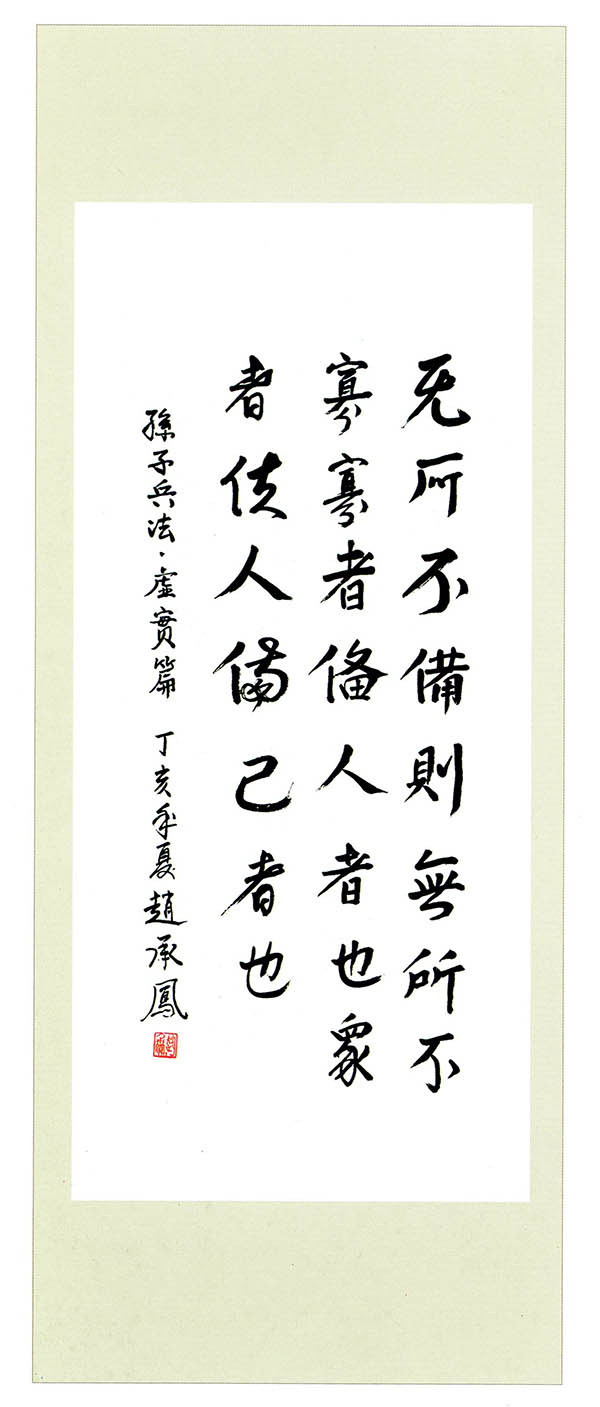 无所不備則無所不
寡寡者俻人者也眾
者使人備己者也
孫子兵法·虛實篇 丁亥年夏趙承鳳